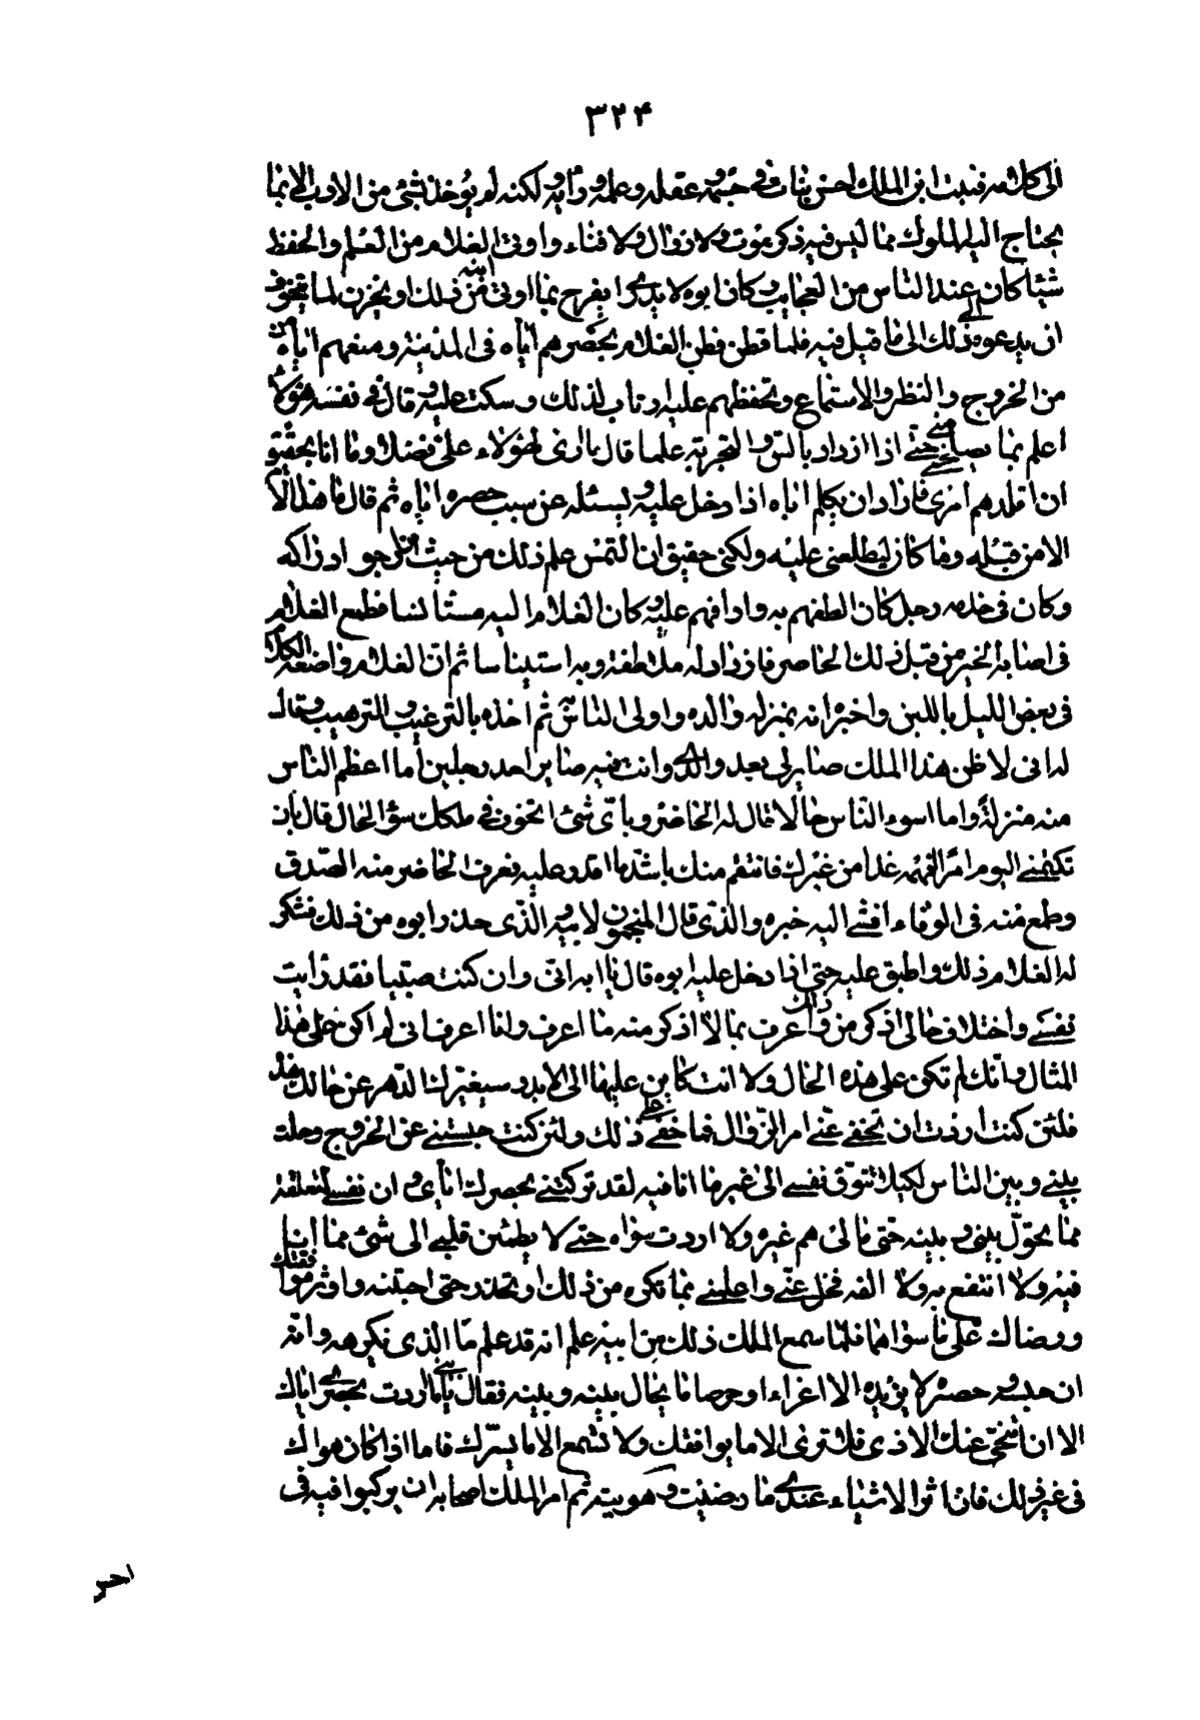 ۳۲۴
الى كلامه فنبت ابن الملك احسن نبات فى جسمه وعقله وعلمه ورايه ولكنه لم يؤخذ بشئ من الاداب الا بما
يحتاج اليه الملوك مما ليس فيه ذكر موت ولا زوال ولا فناء واوتى الغلام من العلم والحفظ
شيئا كان عند الناس من العجايب وكان ابوه لا يدرى ايفرح بما اوتى ابنه من ذلك او يحزن لما يتخوف
ان يدعوه ذلك الى ما قيل فيه فلما فطن الغلام بحصرهم اياه فى المدينة ومنعهم اياه
من الخروج والنظر والاستماع وتحفظهم عليه ارتاب لذلك وسكت عليه وقال فى نفسه هؤلاء
اعلم بما يصلحنى حتى اذا ازداد بالسن والتجربة علما قال ما ارى لهؤلاء على فضلا وما انا بحقيق
ان اقلدهم امرى فاراد ان يكلم اباه اذا دخل عليه ويسئله عن سبب حصره اياه ثم قال ما هذا الامر
الا من قبله وما كان ليطلعنى عليه ولكنى حقيق ان التمس علم ذلك من حيث ارجو ادراكه
وكان فى خدمه رجل كان الطفهم به وارافهم عليه وكان الغلام اليه مستأنسا فطمع الغلام
فى اصابة الخبر من قبل ذلك الحاضن فازداد له ملاطفة وبه استيناسا ثم ان الغلام واضعه الكلام
فى بعض الليل باللين واخبره انه بمنزلة والده واولى الناس به ثم اخذه بالترغيب والترهيب وقال
له انى لاظن هذا الملك صاير لى بعد والدى وانت فيه صاير احد رجلين اما اعظم الناس
منه منزلة واما اسوء الناس حالا قال له الحاضن وباى شئ اتخوف فى ملكك سؤ الحال قال بان
تكتمنى اليوم امرا افهمه غدا من غيرك فانتقم منك باشد ما اقدر عليه فعرف الحاضن منه الصدق
وطمع منه فى الوفاء فافشى اليه خبره والذى قال المنجمون لابيه والذى حذر ابوه من ذلك فشكر
له الغلام ذلك واطبق عليه حتى اذا دخل عليه ابوه قال يا ابه انى وان كنت صبيا فقد رايت
نفسى واختلاف حالى اذكر من ذلك واعرف بما لا اذكر منه ما اعرف وانا اعرف انى لم اكن على هذا
المثال وانك لم تكن على هذه الحال ولا انت كاين عليها الى الابد وسيغيرك الدهر عن حالك هذه
فلئن كنت اردت ان تخفى عنى امر الزوال فما خفى على ذلك ولئن كنت حبستنى عن الخروج وحلت
بينى وبين الناس لكيلا تتوق نفسى الى غير ما انا فيه لقد تركتنى بحصرك اياى وان نفسى لقلقة
مما يحول بينى وبينه حتى ما لى هم غيره ولا اردت سواه حتى لا يطمئن قلبى الى شئ مما انا
فيه ولا انتفع به ولا الفه فخل عنى واعلمنى بما تكره من ذلك وتحذر حتى اجتنبه واوثر موافقتك
ورضاك على ما سواهما فلما سمع الملك ذلك من ابنه علم انه قد علم ما الذى يكرهه وانه
ان حبسه وحصره لا يزيده الا اغراء وحرصا على ما يحال بينه وبينه فقال يا بنى ما اردت بحصرى اياك
الا ان انحى عنك الاذى فلا ترى الا ما يوافقك ولا تسمع الا ما يسرك فاما اذا كان هواك
فى غير ذلك فان اثر الاشياء عندى ما رضيت وهويت ثم امر الملك اصحابه ان يركبوا فيه فى
احسن